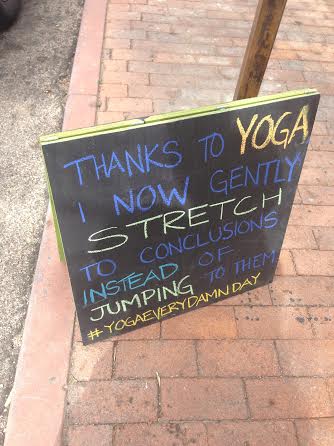 THANKS TO YOGA
I NOW GENTLY
STRETCH
TO CONCLUSIONS
INSTEAD OF
JUMPING TO THEM
#YOGAEVERYDAMNDAY